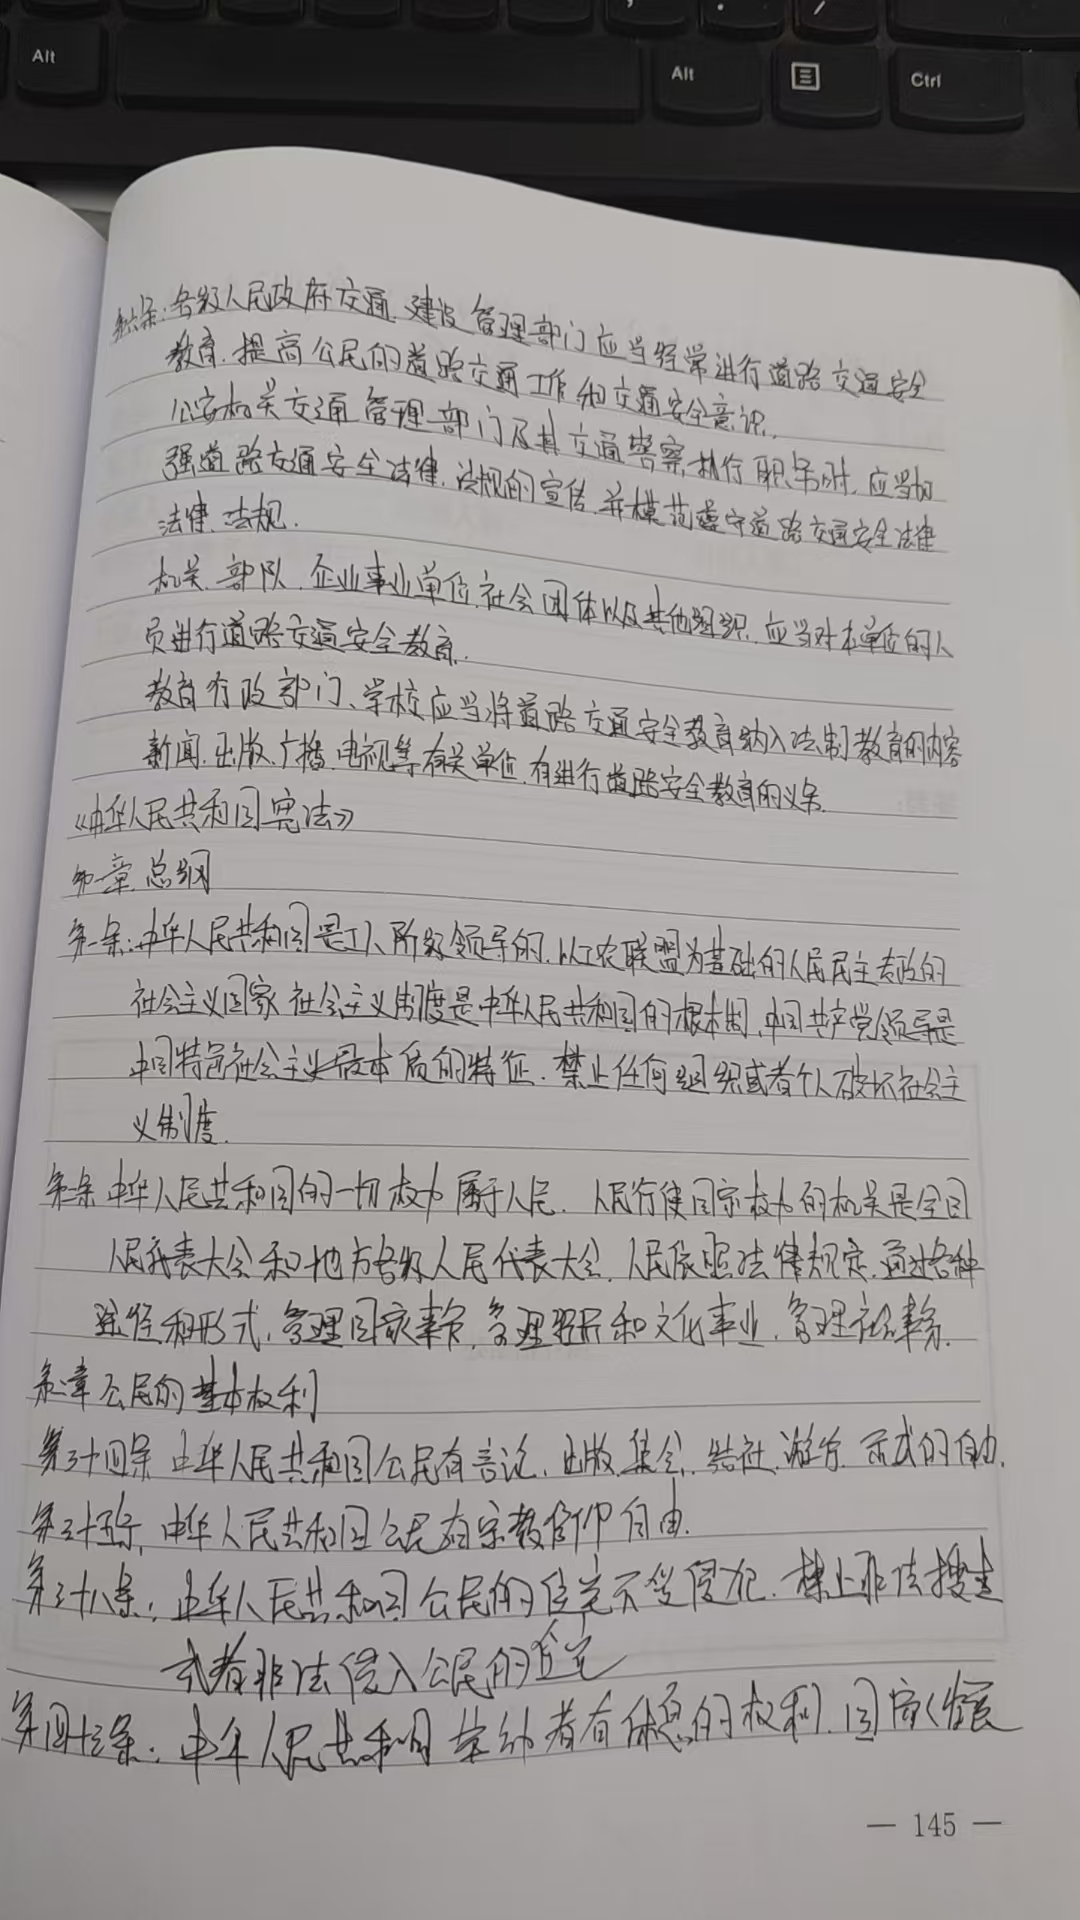 Alt
Alt
Ctrl
第六条：各级人民政府交通、建设管理部门应当经常进行道路交通安全
教育，提高公民的道路交通工作和交通安全意识。
公安机关交通管理部门及其交通警察执行职务时，应当加
强道路交通安全法律、法规的宣传，并模范遵守道路交通安全法律
法律、法规.
机关、部队、企业事业单位、社会团体以及其他组织，应当对本单位的人
员进行道路交通安全教育.
教育行政部门、学校应当将道路交通安全教育纳入法制教育的内容
新闻、出版、广播、电视等有关单位，有进行道路安全教育的义务.
《中华人民共和国宪法》
第一章 总纲
第一条：中华人民共和国是工人阶级领导的，以工农联盟为基础的人民民主专政的
社会主义国家 社会主义制度是中华人民共和国的根本制，中国共产党领导是
中国特色社会主义最本质的特征. 禁止任何组织或者个人破坏社会主
义制度.
第二条 中华人民共和国的一切权力属于人民. 人民行使国家权力的机关是全国
人民代表大会和地方各级人民代表大会. 人民依照法律规定，通过各种
途径和形式，管理国家事务，管理经济和文化事业，管理社会事务.
第二章 公民的基本权利
第三十四条 中华人民共和国公民有言论、出版、集会、结社、游行、示威的自由.
第三十五条，中华人民共和国公民有宗教信仰自由.
第三十八条：中华人民共和国公民的住宅不受侵犯. 禁止非法搜查
或者非法侵入公民的住宅
第四十三条：中华人民共和国劳动者有休息的权利. 国家发展
— 145 —